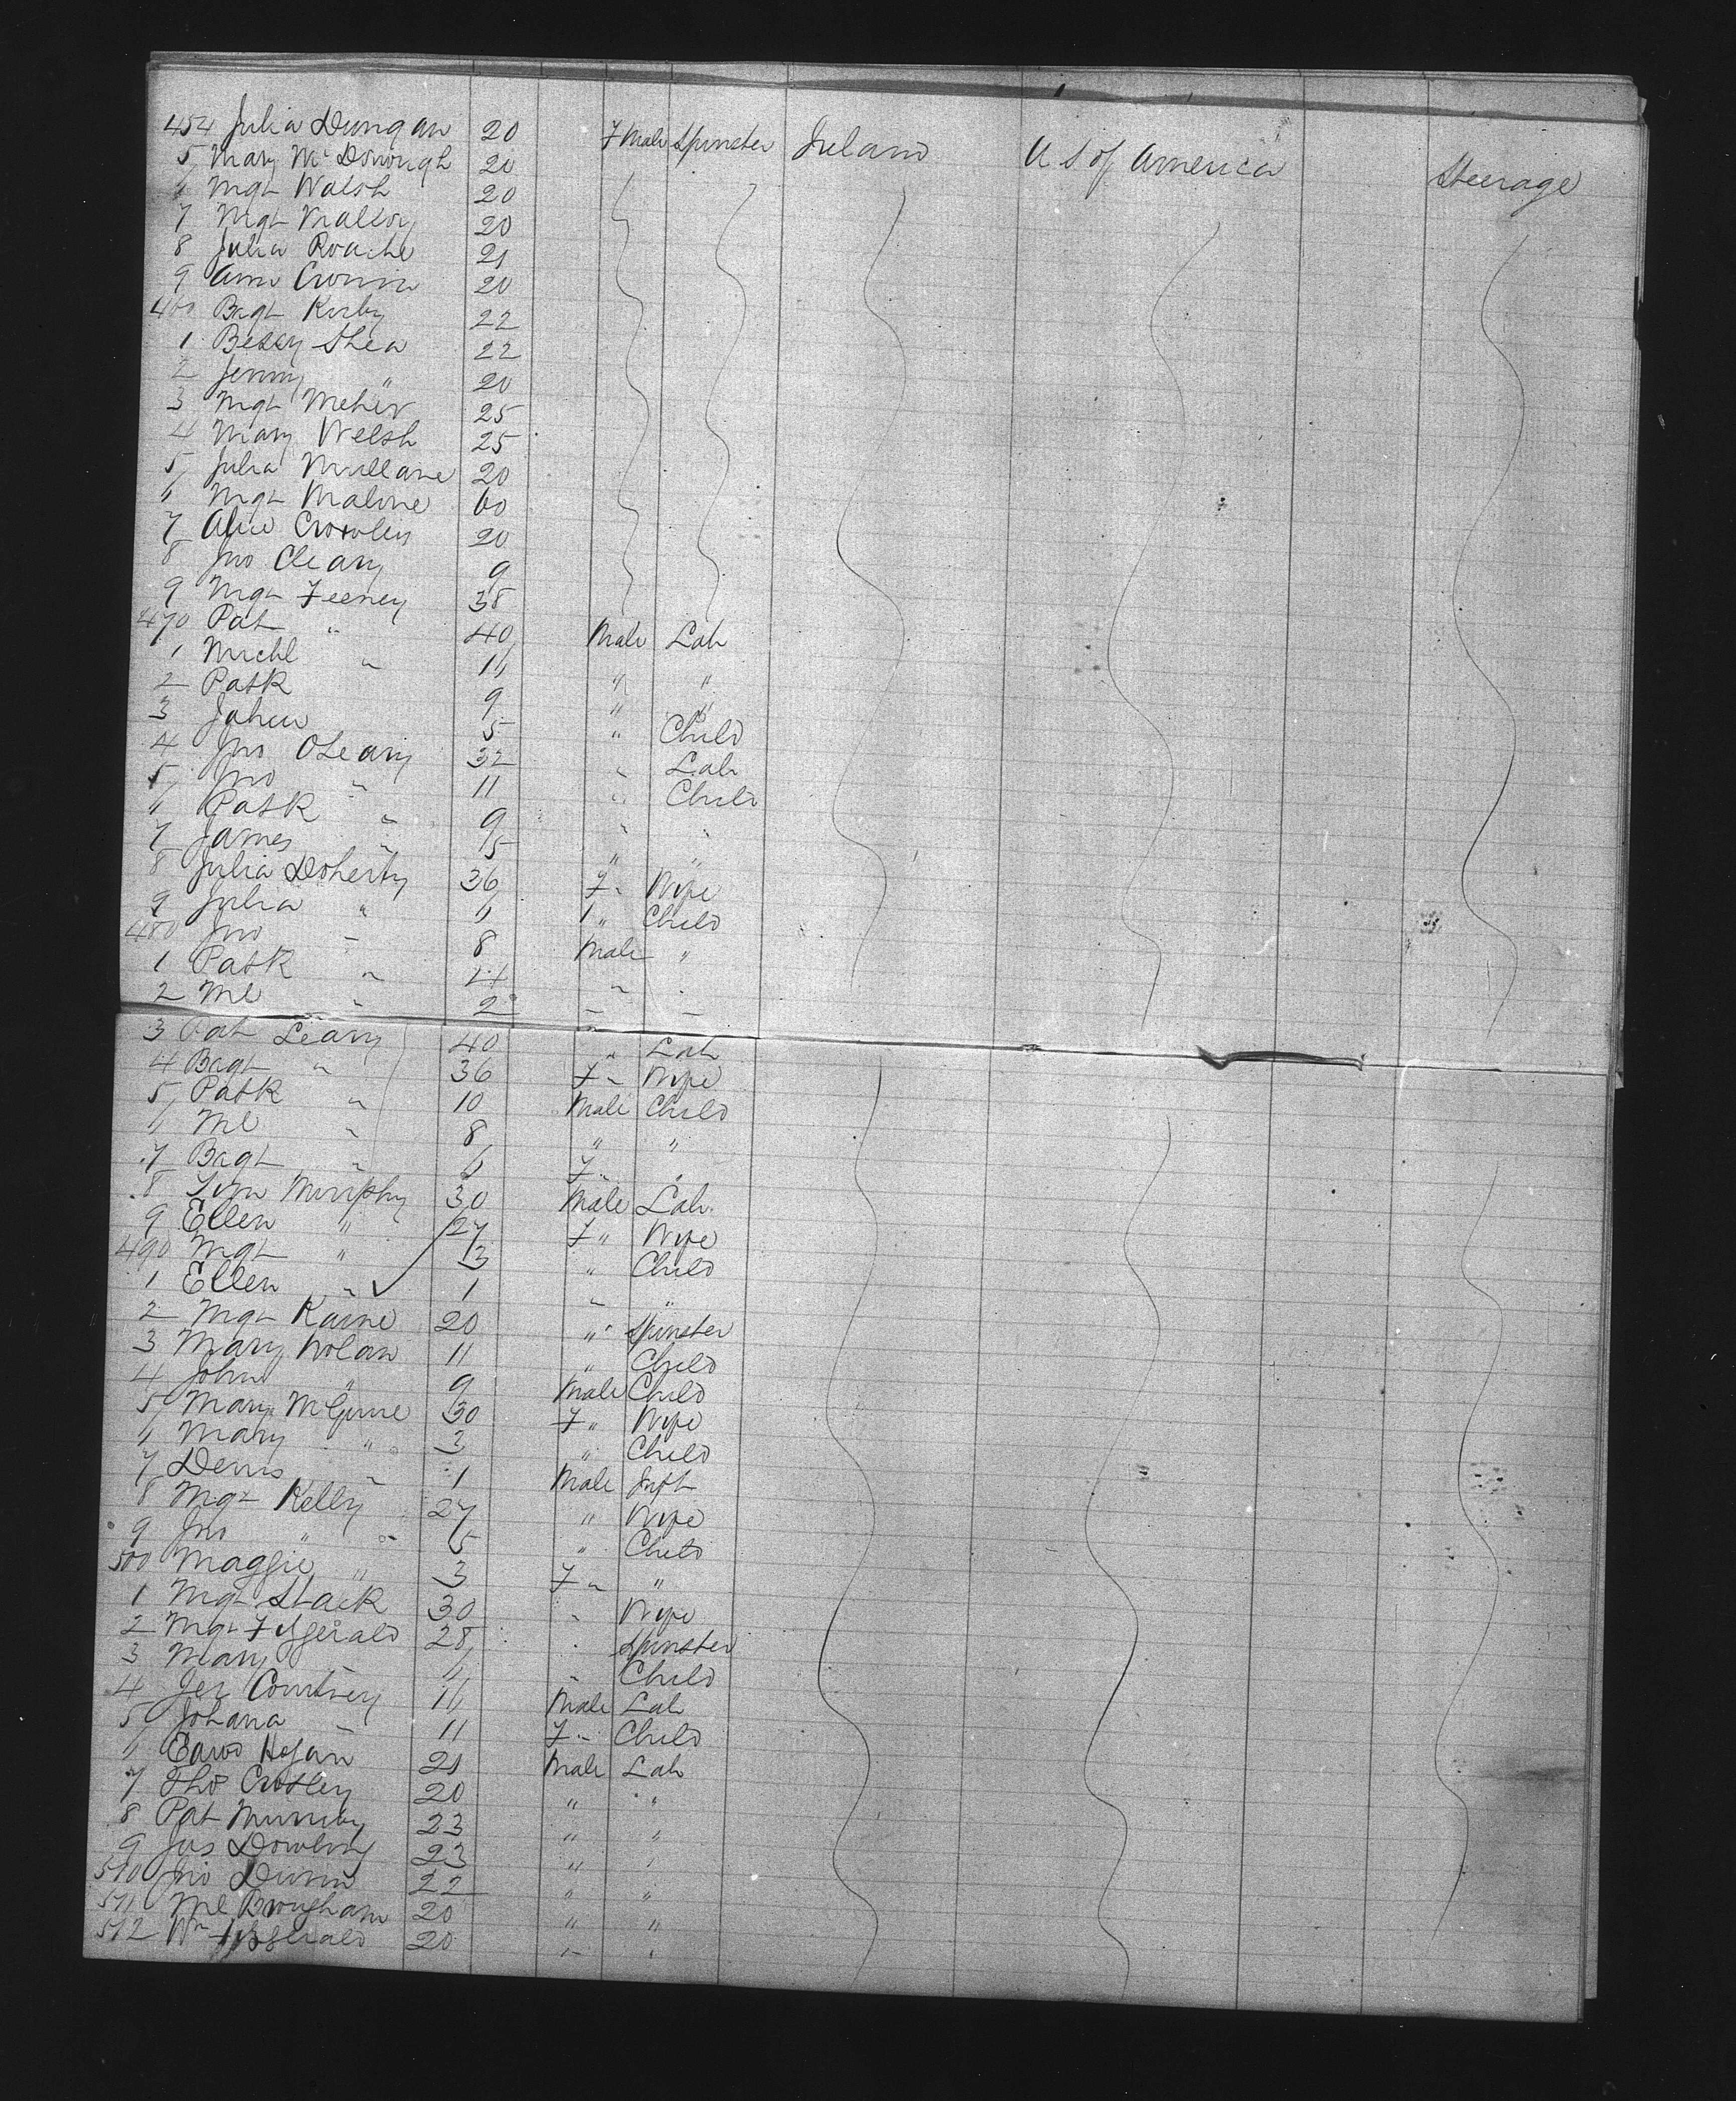 454 Julia Dungan 20 F Male Spinster Ireland U S of America Steerage
5 Mary McDonough 20
6 Mgt Walsh 20
7 Mgt Malloy 20
8 Julia Roache 21
9 Ann Cronin 20
460 Bagt Kirby 22
1 Bessy Shea 22
2 Jenny " 20
3 Mgt Meher 25
4 Mary Welsh 25
5 Julia Mullane 20
6 Mgt Malone 60
7 Alice Crowley 20
8 Jno Cleary 9
9 Mgt Feeney 38
470 Pat " 40 Male Lab
1 Michl " 16 " "
2 Patk 9 " "
3 Johan 5 " Child
4 Jno OLeary 32 " Lab
5 Jno " 11 " Child
6 Patk " 9 " "
7 James " 5 " "
8 Julia Doherty 36 F " Wife
9 Julia " 6 " Child
480 Jno " 8 Male "
1 Patk " 4 " "
2 Ml " 2 " "
3 Pat Leary 40 " Lab
4 Bagt " 36 F " Wife
5 Patk " 10 Male Child
6 Ml " 8 " "
7 Bagt " 6 F " "
8 Tim Murphy 30 Male Lab
9 Ellen " 27 F " Wife
490 Mgt " 13 " Child
1 Ellen " 1 " "
2 Mgt Kane 20 " Spinster
3 Mary Nolan 11 " Child
4 John " 9 Male Child
5 Mary 30 F " Wife
6 Mary " 3 " Child
7 Denis " 1 Male Inft
8 Mgt Kelly 27 " Wife
9 Jno " 5 " Child
500 Maggie " 3 F " "
1 Mgt Stack 30 " Wife
2 Mgt Fitzgerald 28 " Spinster
3 Mary " 6 " Child
4 Jer Courtney 16 Male Lab
5 Johana " 11 F " Child
6 Edwd Hogan 21 Male Lab
7 Thos 20 " "
8 Pat 23 " "
9 Jas Dowling 23 " "
510 Jno Dunn 22 " "
511 Ml Brougham 20 " "
512 Wm Fitzgerald 20 " "